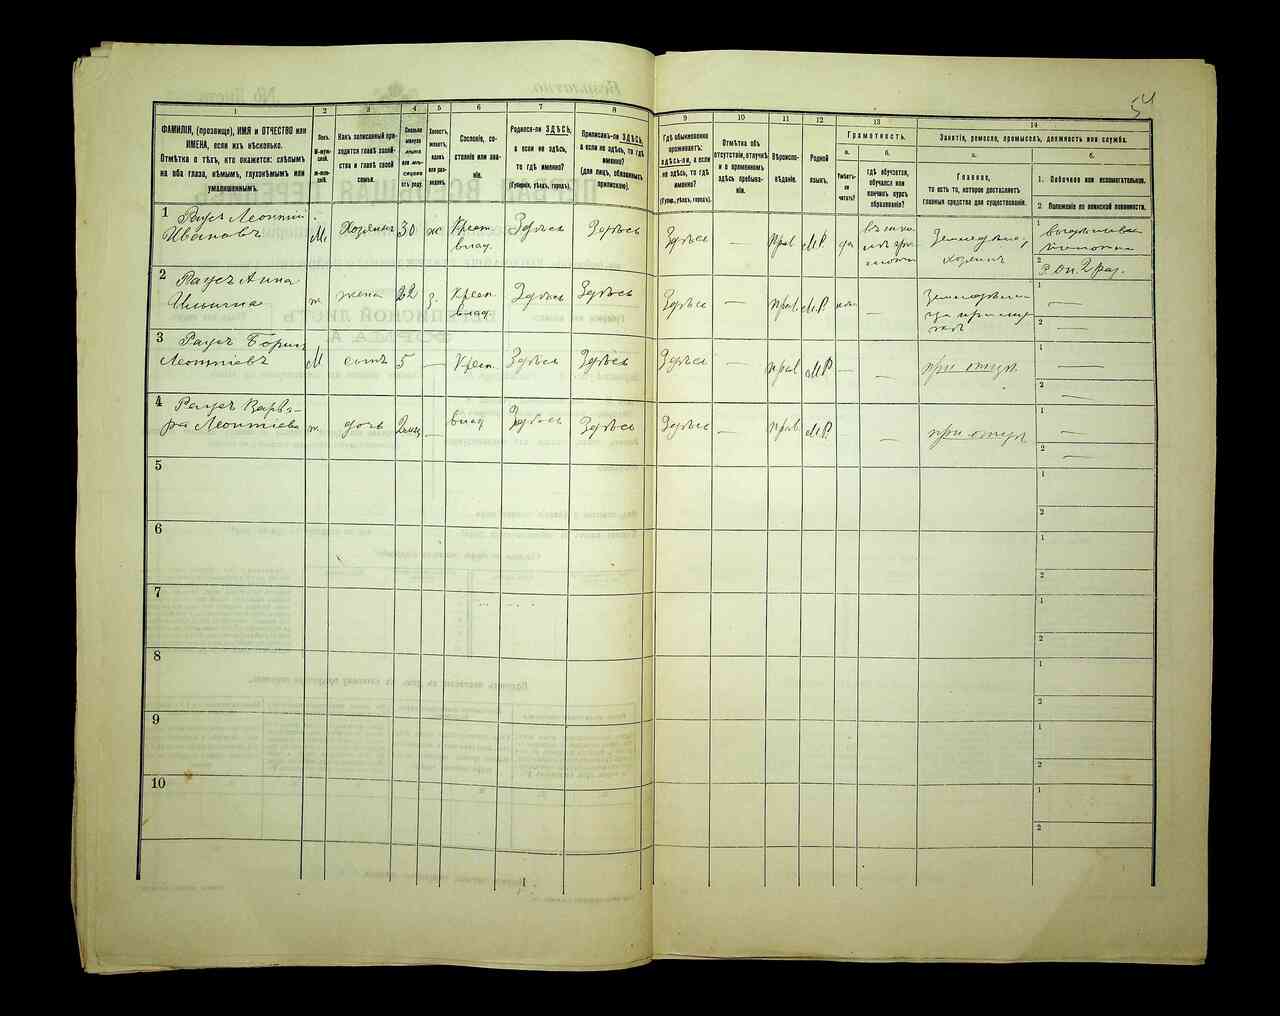 54
1
2
3
4
5
6
7
8
9
10
11
12
13
14
ФАМИЛІЯ, (прозвище), ИМЯ и ОТЧЕСТВО или
ИМЕНА, если ихъ нѣсколько.
Отмѣтка о тѣхъ, кто окажется: слѣпымъ
на оба глаза, нѣмымъ, глухонѣмымъ или
умалишеннымъ.
Полъ.
М-мужской.
Ж-женскій.
Какъ записанный приходится главѣ хозяйства и главѣ своей семьи.
Сколько минуло лѣтъ или мѣсяцевъ отъ роду.
Холостъ, женатъ, вдовъ или разведенъ.
Сословіе, состояніе или званіе.
Родился-ли ЗДѢСЬ,
а если не здѣсь,
то гдѣ именно?
(Губернія, уѣздъ, городъ).
Приписанъ-ли ЗДѢСЬ,
а если не здѣсь, то гдѣ
именно?
(для лицъ, обязанныхъ
припискою).
Гдѣ обыкновенно
проживаетъ:
здѣсь-ли, а если
не здѣсь, то гдѣ
именно?
(Губерн., уѣздъ, городъ).
Отмѣтка объ
отсутствіи, отлучкѣ
и о временномъ
здѣсь пребываніи.
Вѣроисповѣданіе.
Родной
языкъ.
Грамотность.
а.
Умѣетъ-ли
читать?
б.
гдѣ обучается,
обучался или
кончилъ курсъ
образованія?
Занятіе, ремесло, промыселъ, должность или служба.
а.
Главное,
то есть то, которое доставляетъ
главныя средства для существованія.
б.
1. Побочное или вспомогательное.
2. Положеніе по воинской повинности.
1
Леонтій
Ивановъ
М.
Хозяинъ
30
ж
Крест.
влад.
Здѣсь
Здѣсь
Здѣсь
—
Прав
МР
да
Земледѣлецъ,
хозяинъ
2
Анна
Ильична
ж.
жена
22
з.
Крест.
влад.
Здѣсь
Здѣсь
Здѣсь
—
прав
МР.
—
1
—
2
—
3
Борисъ
Леонтіевъ
М
сынъ
5
—
Крест.
Здѣсь
Здѣсь
Здѣсь
—
прав
МР
—
—
при отцѣ
1
—
2
—
4
Варва-
ра Леонтіева
ж.
дочь
2 мѣс
—
влад
Здѣсь
Здѣсь
Здѣсь
—
прав
МР.
—
при отцѣ
1
—
2
—
5
1
2
6
1
2
7
1
2
8
1
2
9
1
2
10
1
2